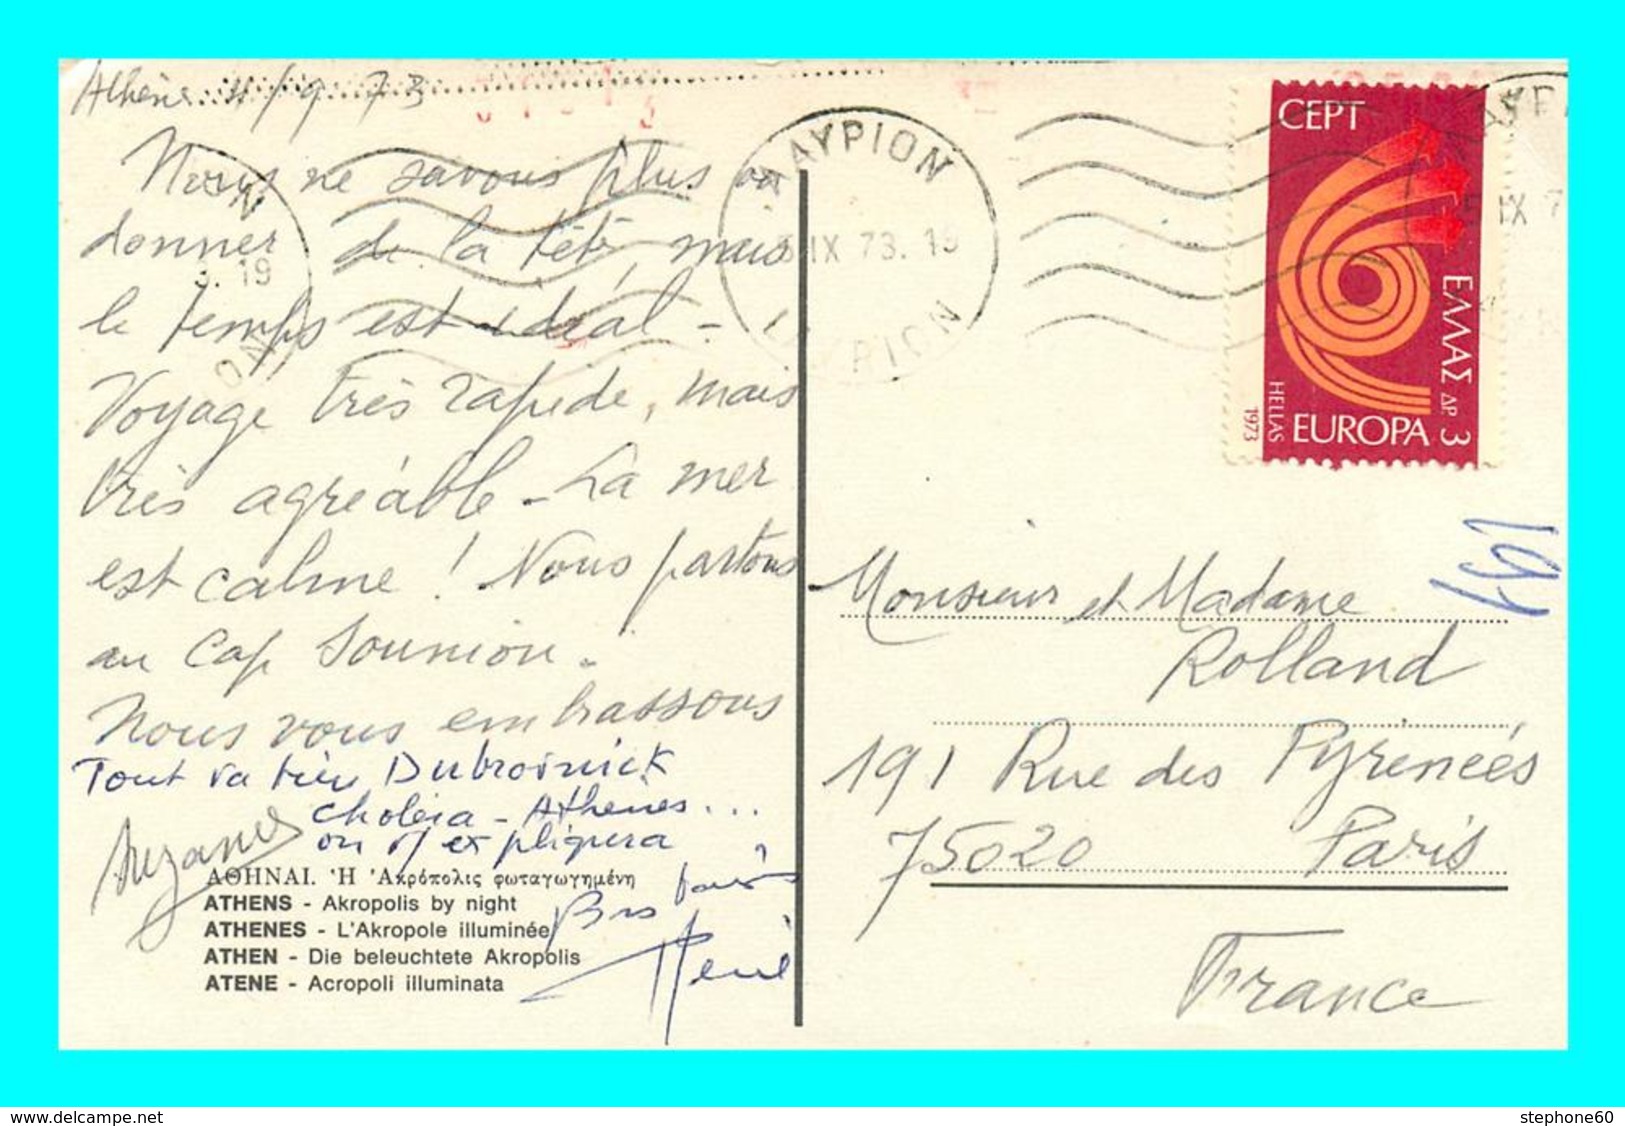 Athène 4/9 73
Nous ne savons plus où
donner de la tête, mais
le temps est idéal -
Voyage très rapide, mais
très agréable - La mer
est calme ! Nous partons
au Cap Sounion -
Nous vous embrassons
Tout va bien Dubrovnick
choléra - Athènes ...
on s/ expliquera
Bons baisers
ΑΘΗΝΑΙ. Ἡ Ἀκρόπολις φωταγωγημένη
ATHENS - Akropolis by night
ATHENES - L'Akropole illuminée
ATHEN - Die beleuchtete Akropolis
ATENE - Acropoli illuminata
ΛΑΥΡΙΟΝ
IX 73. 19
LAYRION
CEPT
ΕΛΛΑΣ ΔΡ 3
HELLAS
1973
EUROPA
191
Monsieur et Madame
Rolland
191 Rue des Pyrénées
75020 Paris
France
www.delcampe.net
stephone60